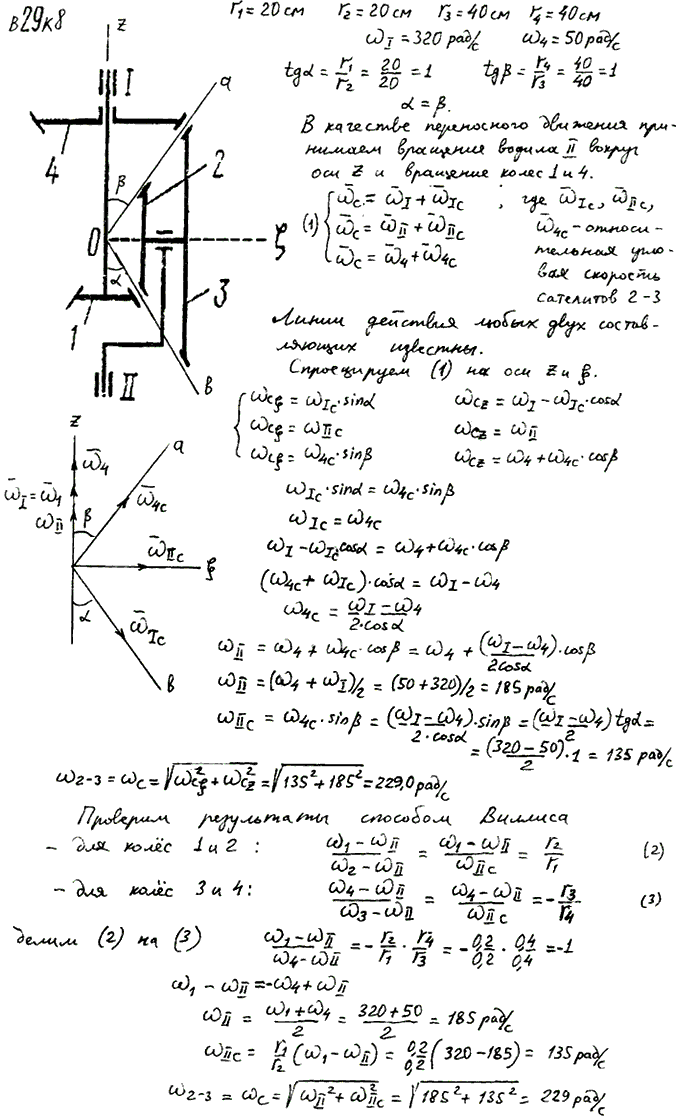 в29к8
r₁ = 20 см r₂ = 20 см r₃ = 40 см r₄ = 40 см
ω_I = 320 рад/с ω₄ = 50 рад/с
tgα = r₁/r₂ = 20/20 = 1 tgβ = r₄/r₃ = 40/40 = 1
α = β.
В качестве переносного движения при-
нимаем вращения водила II вокруг
оси z и вращение колес 1 и 4.
(1) { ω̄_c = ω̄_I + ω̄_Ic ; где ω̄_Ic, ω̄_IIc,
ω̄_c = ω̄_II + ω̄_IIc ω̄_4c - относи-
ω̄_c = ω̄_4 + ω̄_4c тельная угло-
вая скорость
сателитов 2-3
z
I
a
4
β
2
O
ξ
α
1
3
II
в
Линии действия любых двух состав-
ляющих известны.
Спроецируем (1) на оси z и ξ.
{ ω_cξ = ω_Ic · sinα ω_cz = ω_I - ω_Ic · cosα
ω_cξ = ω_IIc ω_cz = ω_II
ω_cξ = ω_4c · sinβ ω_cz = ω_4 + ω_4c · cosβ
z
a
ω̄_4
ω̄_I = ω̄_1
ω̄_II
β
ω̄_4c
ω̄_IIc
ξ
α
ω̄_Ic
в
ω_Ic · sinα = ω_4c · sinβ
ω_Ic = ω_4c
ω_I - ω_Ic cosα = ω_4 + ω_4c · cosβ
(ω_4c + ω_Ic) · cosα = ω_I - ω_4
ω_4c = (ω_I - ω_4)/(2·cosα)
ω_II = ω_4 + ω_4c · cosβ = ω_4 + (ω_I - ω_4)/(2cosα) · cosβ
ω_II = (ω_4 + ω_I)/2 = (50 + 320)/2 = 185 рад/с
ω_IIc = ω_4c · sinβ = (ω_I - ω_4)·sinβ/(2·cosα) = (ω_I - ω_4)/2 tgα =
= (320 - 50)/2 · 1 = 135 рад/с
ω_2-3 = ω_c = √(ω_cξ² + ω_cz²) = √(135² + 185²) = 229,0 рад/с
Проверим результаты способом Виллиса
- для колёс 1 и 2 : (ω_1 - ω_II)/(ω_2 - ω_II) = (ω_1 - ω_II)/ω_IIc = r₂/r₁ (2)
- для колёс 3 и 4: (ω_4 - ω_II)/(ω_3 - ω_II) = (ω_4 - ω_II)/ω_IIc = - r₃/r₄ (3)
делим (2) на (3) (ω_1 - ω_II)/(ω_4 - ω_II) = - r₂/r₁ · r₄/r₃ = - 0,2/0,2 · 0,4/0,4 = -1
ω_1 - ω_II = -ω_4 + ω_II
ω_II = (ω_1 + ω_4)/2 = (320 + 50)/2 = 185 рад/с
ω_IIc = r₁/r₂ (ω_1 - ω_II) = 0,2/0,2 (320 - 185) = 135 рад/с
ω_2-3 = ω_c = √(ω_II² + ω_IIc²) = √(185² + 135²) = 229 рад/с